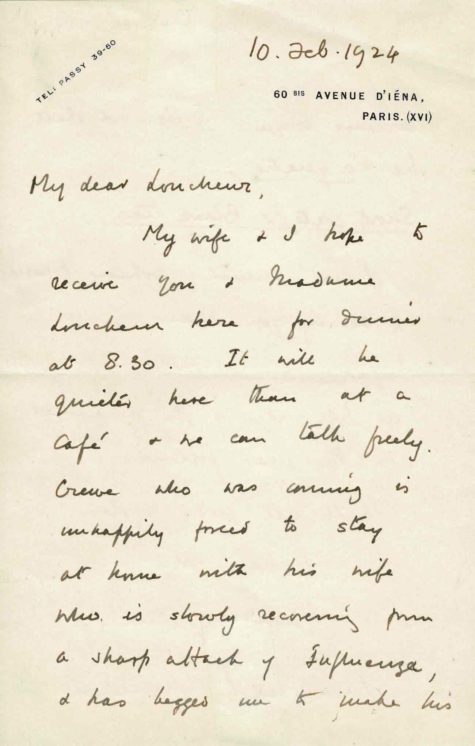 TEL: PASSY 39-60
10. Feb. 1924
60 BIS AVENUE D'IÉNA,
PARIS. (XVI)
My dear Loucheur,
My wife & I hope to
receive you & Madame
Loucheur here for dinner
at 8.30. It will be
quieter here than at a
Café & we can talk freely.
Crewe who was coming is
unhappily forced to stay
at home with his wife
who is slowly recovering from
a sharp attack of Influenza,
& has begged me to make his